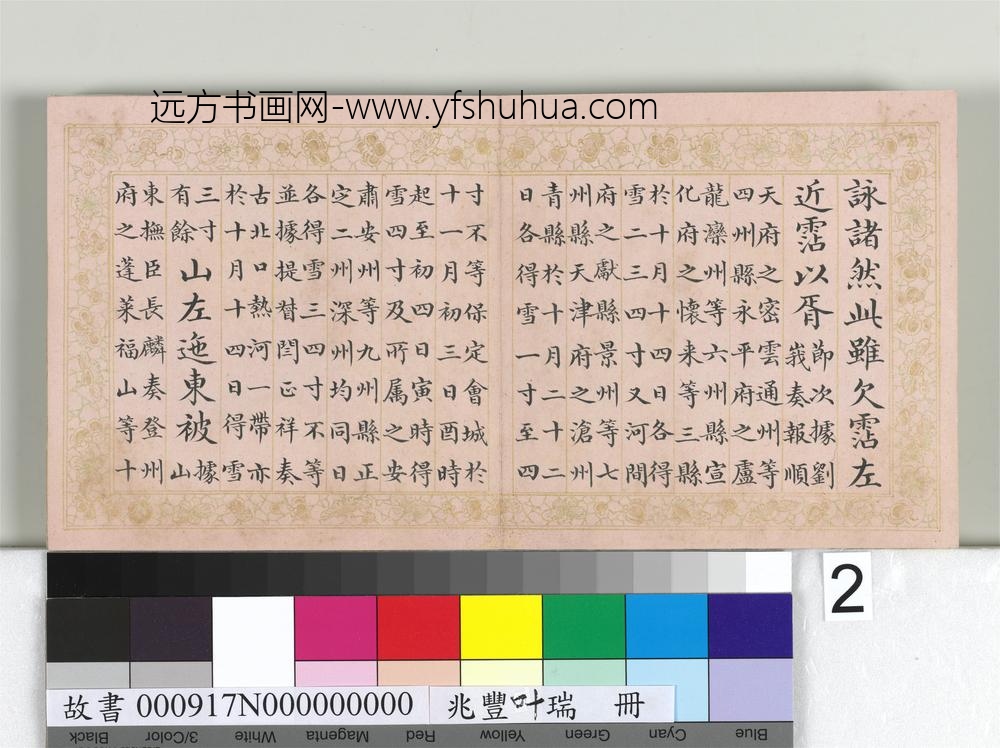 远方书画网-www.yfshuhua.com
詠諸然此雖欠霑左
近霑以胥
節次據劉
峩奏報順
天府之密雲通州等
四州縣永平府之盧
龍灤州等六州縣宣
化府之懷来等三縣
於十月十四日各得
雪二三四寸又河間
府之獻縣景州等七
州縣天津府之滄州
青縣於十月二十二
日各得雪一寸至四
寸不等保定會城於
十一月初三日酉時
起至初四日寅時得
雪四寸及所属之安
肅安州等九州縣正
定二州深州均同日
各得雪三四寸不等
並據提督閆正祥奏
古北口熱河一帶亦
於十月十四日得雪
三寸
有餘
山左迤東被
據
山
東撫臣長麟奏登州
府之蓬萊福山等十
2
故書 000917N000000000 兆豐叶瑞 冊
Black 3/Color White Magenta Red Yellow Green Cyan Blue